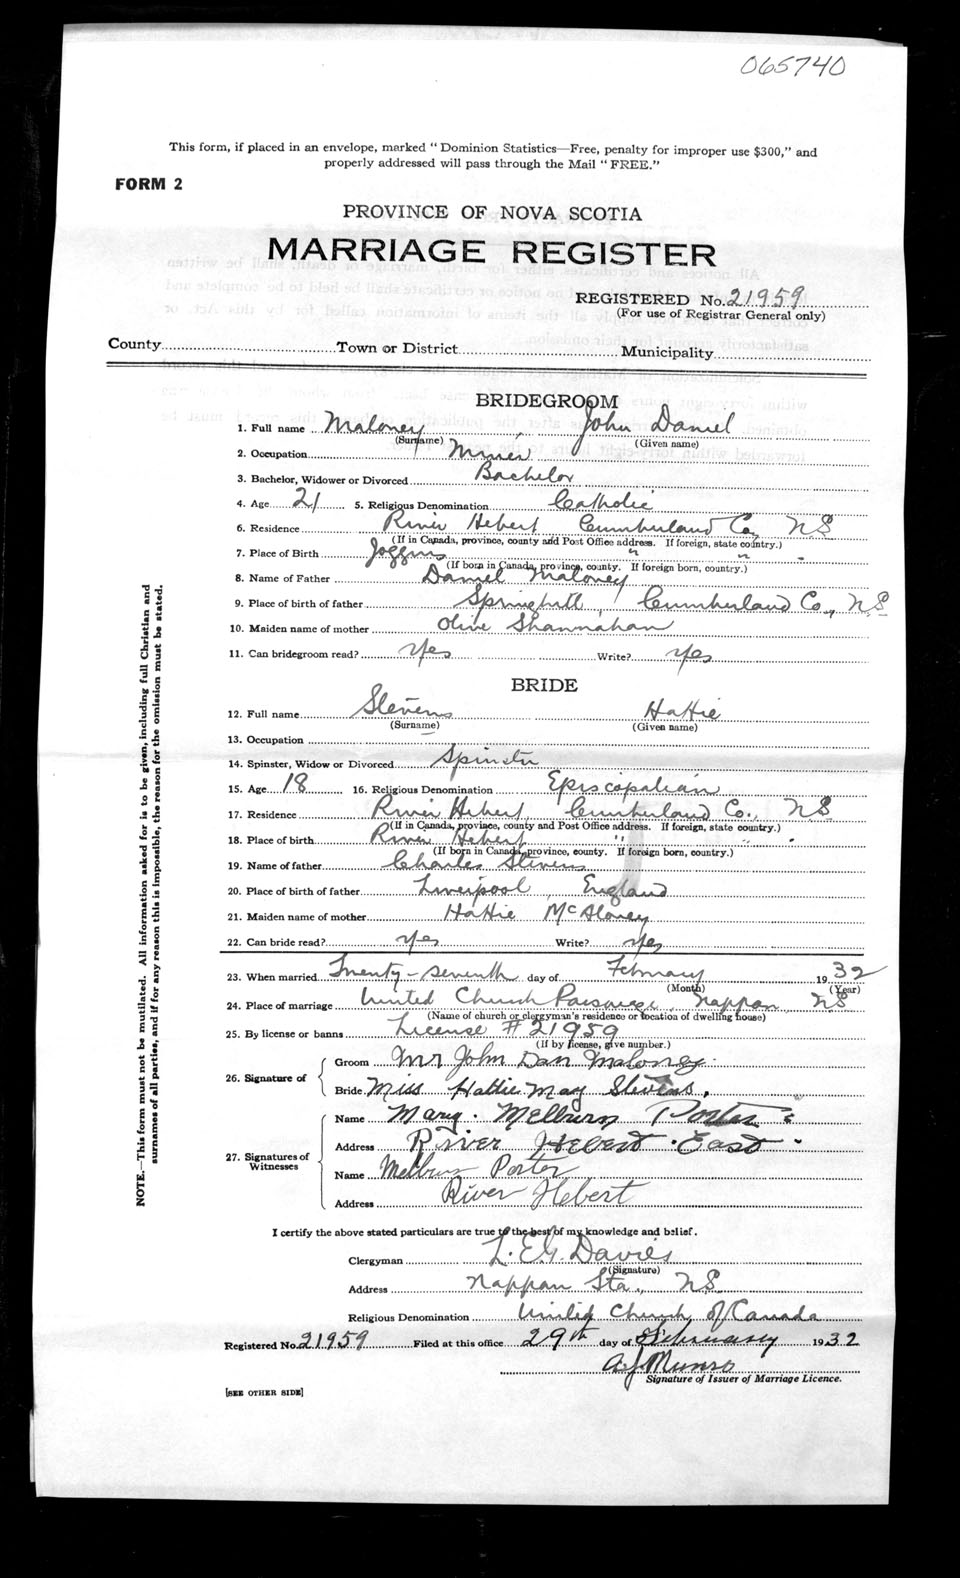 065740
This form, if placed in an envelope, marked "Dominion Statistics—Free, penalty for improper use $300," and
properly addressed will pass through the Mail "FREE."
FORM 2
PROVINCE OF NOVA SCOTIA
MARRIAGE REGISTER
REGISTERED No. 21959
(For use of Registrar General only)
County Town or District Municipality
BRIDEGROOM
1. Full name Maloney John Daniel
(Surname) (Given name)
2. Occupation Miner
3. Bachelor, Widower or Divorced Bachelor
4. Age 21 5. Religious Denomination Catholic
6. Residence River Hebert Cumberland Co, NS
(If in Canada, province, county and Post Office address. If foreign, state country.)
7. Place of Birth Joggins " "
(If born in Canada, province, county. If foreign born, country.)
8. Name of Father Daniel Maloney
9. Place of birth of father Springhill, Cumberland Co., NS
10. Maiden name of mother Olive Shannahan
11. Can bridegroom read? Yes Write? Yes
BRIDE
12. Full name Stevens Hattie
(Surname) (Given name)
13. Occupation
14. Spinster, Widow or Divorced Spinster
15. Age 18 16. Religious Denomination Episcopalian
17. Residence River Hebert, Cumberland Co., NS
(If in Canada, province, county and Post Office address. If foreign, state country.)
18. Place of birth River Hebert " "
(If born in Canada, province, county. If foreign born, country.)
19. Name of father Charles Stevens
20. Place of birth of father Liverpool, England
21. Maiden name of mother Hattie McAloney
22. Can bride read? Yes Write? Yes
23. When married Twenty-seventh day of February 1932
(Month) (Year)
24. Place of marriage United Church Parsonage, Nappan, NS
(Name of church or clergyman's residence or location of dwelling house)
25. By license or banns License # 21959
(If by license, give number.)
26. Signature of
Groom Mr John Dan Maloney.
Bride Miss Hattie May Stevens.
27. Signatures of Witnesses
Name Mary. Melburn Porter
Address River Hebert East
Name Melburn Porter
Address River Hebert
I certify the above stated particulars are true to the best of my knowledge and belief.
Clergyman L. E. G. Davies
(Signature)
Address Nappan Sta., NS
Religious Denomination United Church of Canada
Registered No. 21959 Filed at this office 29th day of February 1932
A J Munro
Signature of Issuer of Marriage Licence.
[SEE OTHER SIDE]
NOTE.—This form must not be mutilated. All information asked for is to be given, including full Christian and
surnames of all parties, and if for any reason this is impossible, the reason for the omission must be stated.